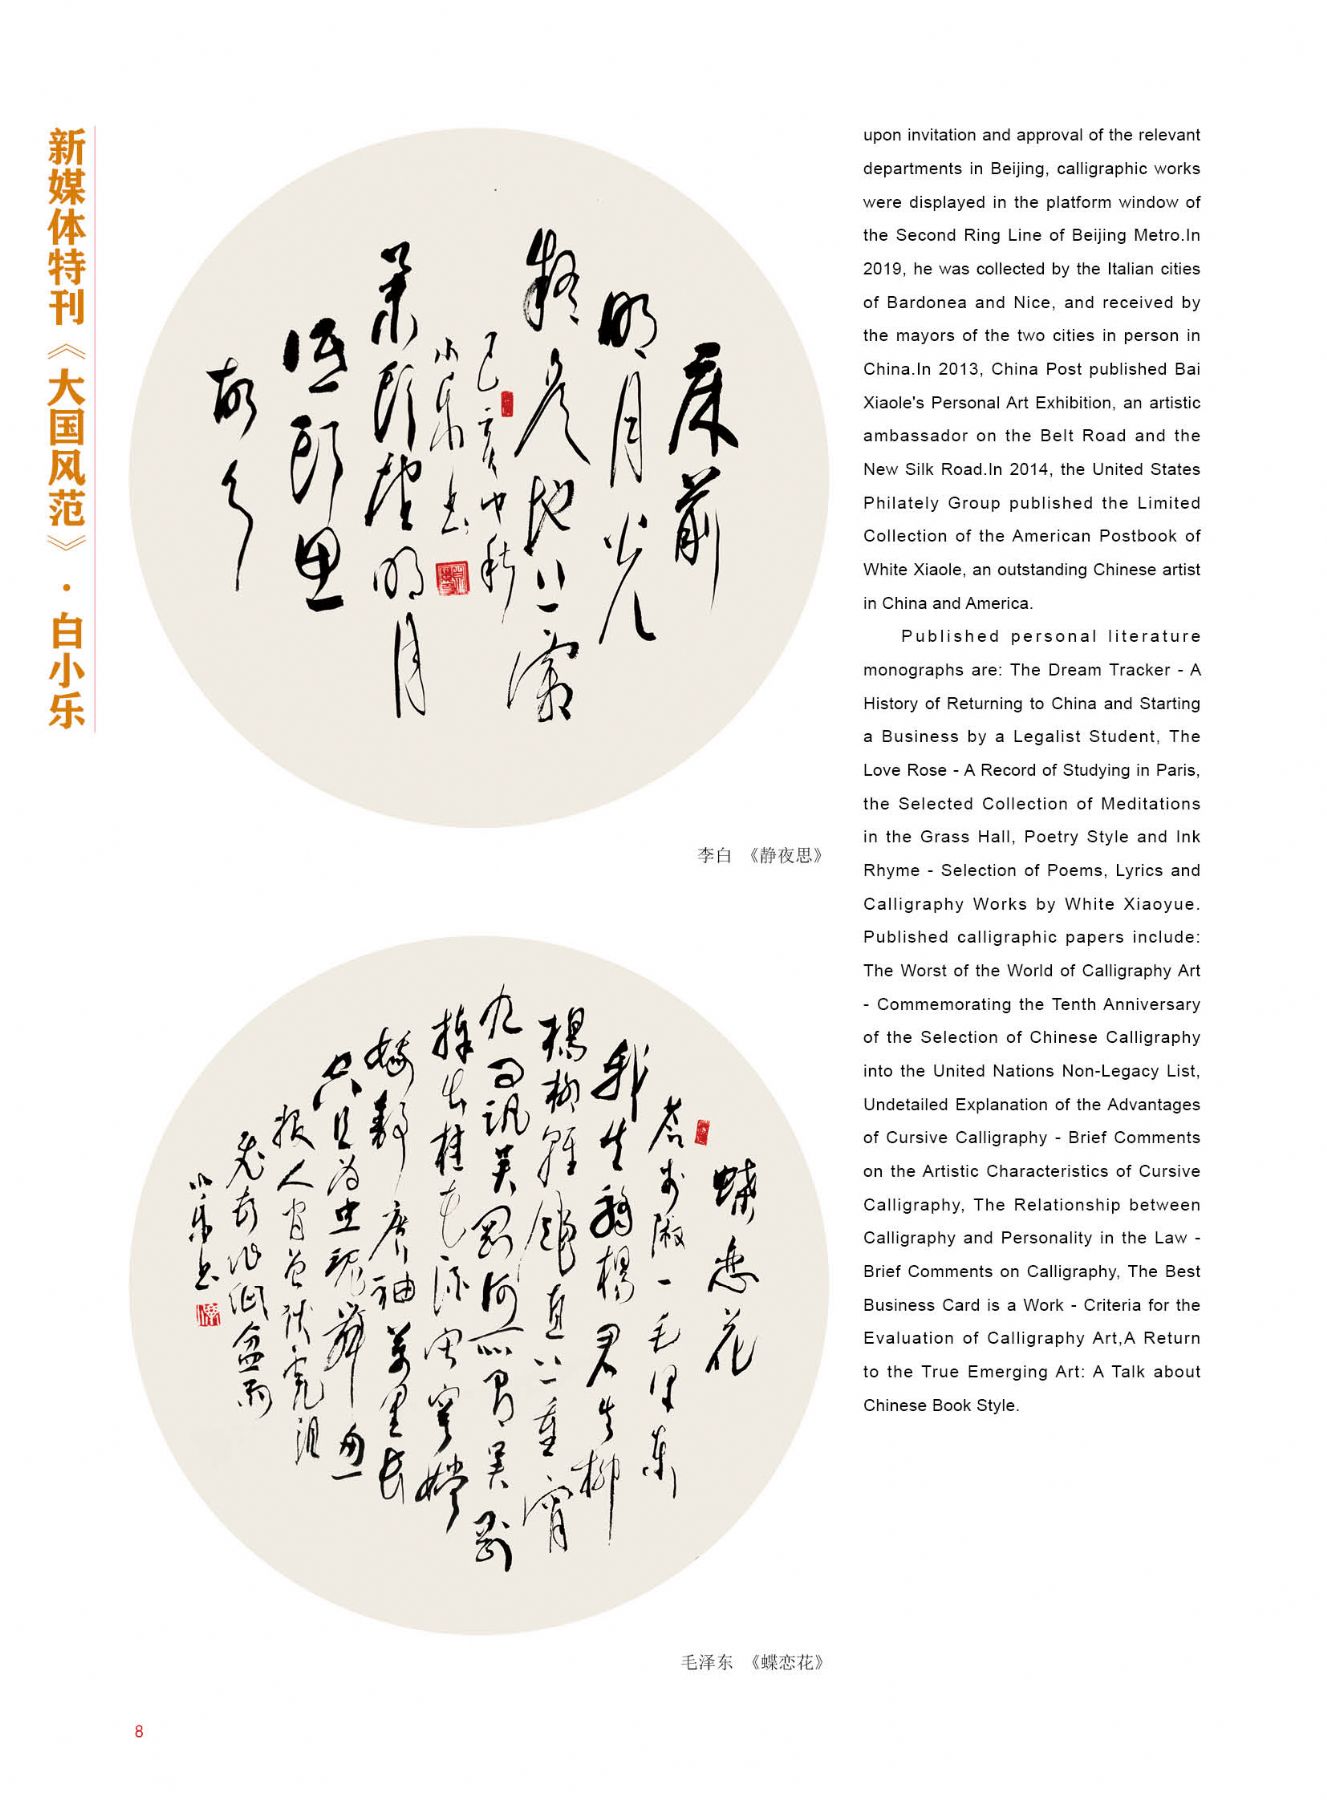 新媒体特刊《大国风范》·白小乐
床前
明月光
疑是地上霜
己亥中秋
小乐书
举头望明月
低头思
故乡
李白 《静夜思》
蝶恋花
答李淑一 毛泽东
我失骄杨君失柳
杨柳轻飏直上重霄
九 问讯吴刚何所有 吴刚
捧出桂花酒 寂寞嫦
娥舒广袖 万里长
空且为忠魂舞 忽
报人间曾伏虎 泪
飞顿作倾盆雨
小乐书
毛泽东 《蝶恋花》
upon invitation and approval of the relevant
departments in Beijing, calligraphic works
were displayed in the platform window of
the Second Ring Line of Beijing Metro.In
2019, he was collected by the Italian cities
of Bardonea and Nice, and received by
the mayors of the two cities in person in
China.In 2013, China Post published Bai
Xiaole's Personal Art Exhibition, an artistic
ambassador on the Belt Road and the
New Silk Road.In 2014, the United States
Philately Group published the Limited
Collection of the American Postbook of
White Xiaole, an outstanding Chinese artist
in China and America.
Published personal literature
monographs are: The Dream Tracker - A
History of Returning to China and Starting
a Business by a Legalist Student, The
Love Rose - A Record of Studying in Paris,
the Selected Collection of Meditations
in the Grass Hall, Poetry Style and Ink
Rhyme - Selection of Poems, Lyrics and
Calligraphy Works by White Xiaoyue.
Published calligraphic papers include:
The Worst of the World of Calligraphy Art
- Commemorating the Tenth Anniversary
of the Selection of Chinese Calligraphy
into the United Nations Non-Legacy List,
Undetailed Explanation of the Advantages
of Cursive Calligraphy - Brief Comments
on the Artistic Characteristics of Cursive
Calligraphy, The Relationship between
Calligraphy and Personality in the Law -
Brief Comments on Calligraphy, The Best
Business Card is a Work - Criteria for the
Evaluation of Calligraphy Art,A Return
to the True Emerging Art: A Talk about
Chinese Book Style.
8